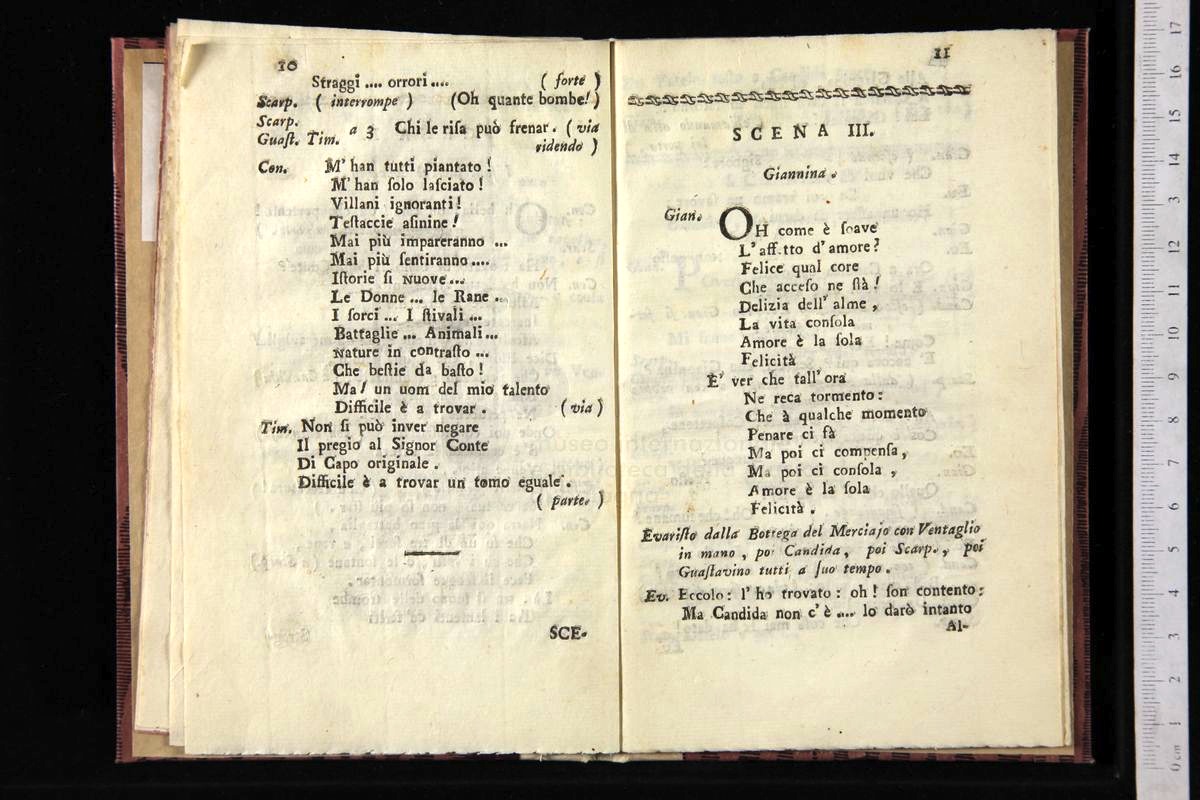 10
Straggi .... orrori .... ( forte )
Scarp. ( interrompe ) (Oh quante bombe! )
Scarp.
Guast. Tim. a 3 Chi le risa può frenar. ( via
ridendo )
Con. M' han tutti piantato !
M' han solo lasciato !
Villani ignoranti !
Testaccie asinine !
Mai più impareranno ...
Mai più sentiranno ....
Istorie sì nuove ...
Le Donne ... le Rane ..
I sorci ... I stivali ...
Battaglie ... Animali ...
Nature in contrasto ...
Che bestie da basto !
Ma! un uom del mio talento
Difficile è a trovar . ( via )
Tim. Non si può inver negare
Il pregio al Signor Conte
Di Capo originale .
Difficile è a trovar un tomo eguale .
( parte. )
SCE-
11
SCENA III.
Giannina .
Gian. OH come è soave
L' affetto d' amore?
Felice qual core
Che acceso ne stà !
Delizia dell' alme ,
La vita consola
Amore è la sola
Felicità
E' ver che tall' ora
Ne reca tormento :
Che à qualche momento
Penare ci fà
Ma poi ci compensa ,
Ma poi ci consola ,
Amore è la sola
Felicità .
Evaristo dalla Bottega del Merciajo con Ventaglio
in mano , poi Candida , poi Scarp. , poi
Guastavino tutti a suo tempo .
Ev. Eccolo : l' ho trovato : oh ! son contento ;
Ma Candida non c' è .... lo darò intanto
Al-
0 cm 1 2 3 4 5 6 7 8 9 10 11 12 13 14 15 16 17